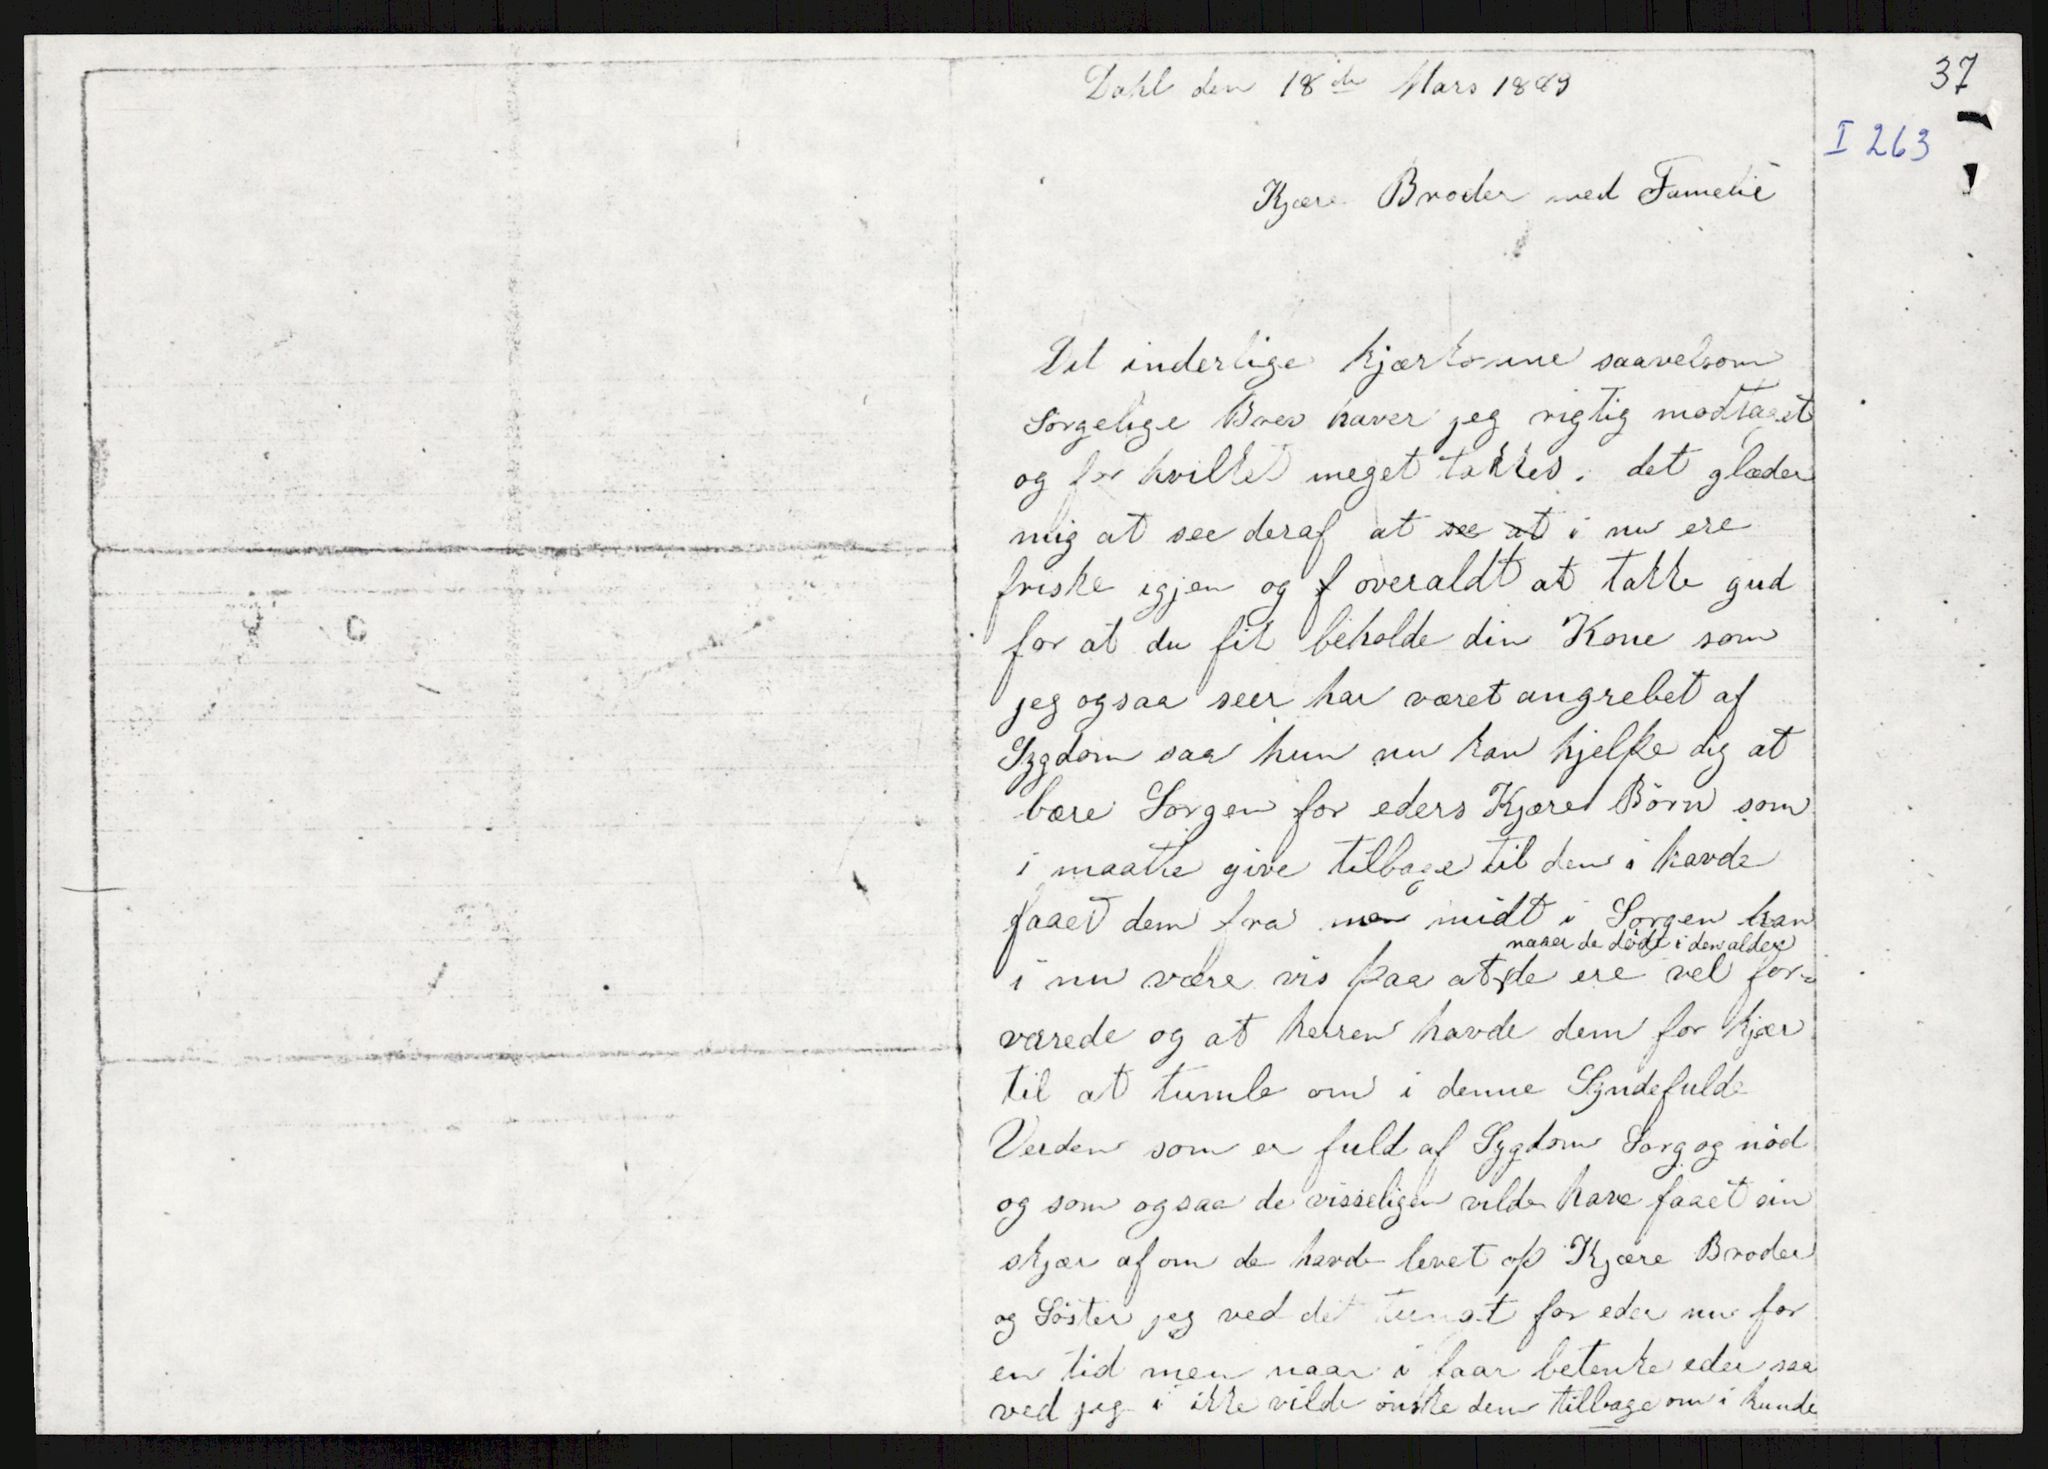 37
I 263
Dahl den 18de Mars 1889
Kjære Broder med Famelie
Dit inderlige kjærkomne saavelsom
Sørgelige Brev haver jeg rigtig modtaget
og for hvilket meget takkes. det glæder
mig at see deraf at see at i nu ere
friske igjen og f overaldt at takke gud
for at du fik beholde din Kone som
jeg ogsaa seer har været angrebet af
Sygdom saa hun nu kan hjelpe dig at
bære Sorgen for eders Kjære Börn som
i maatte give tilbage til den i havde
faaet dem fra men midt i Sorgen kan
naaer de döde i den alder
i nu være vis paa at de ere vel for-
varede og at herren havde dem for kjær
til at tumle om i denne Syndefulde
Verden som er fuld af Sygdom Sorg og nöd
og som ogsaa de visseligen vilde have faaet sin
skjær af om de havde levet op Kjære Broder
og Söster jeg ved det tungt for eder nu for
en tid men naar i faar betenke eder saa
ved jeg i ikke vilde önske dem tilbage om i kunde